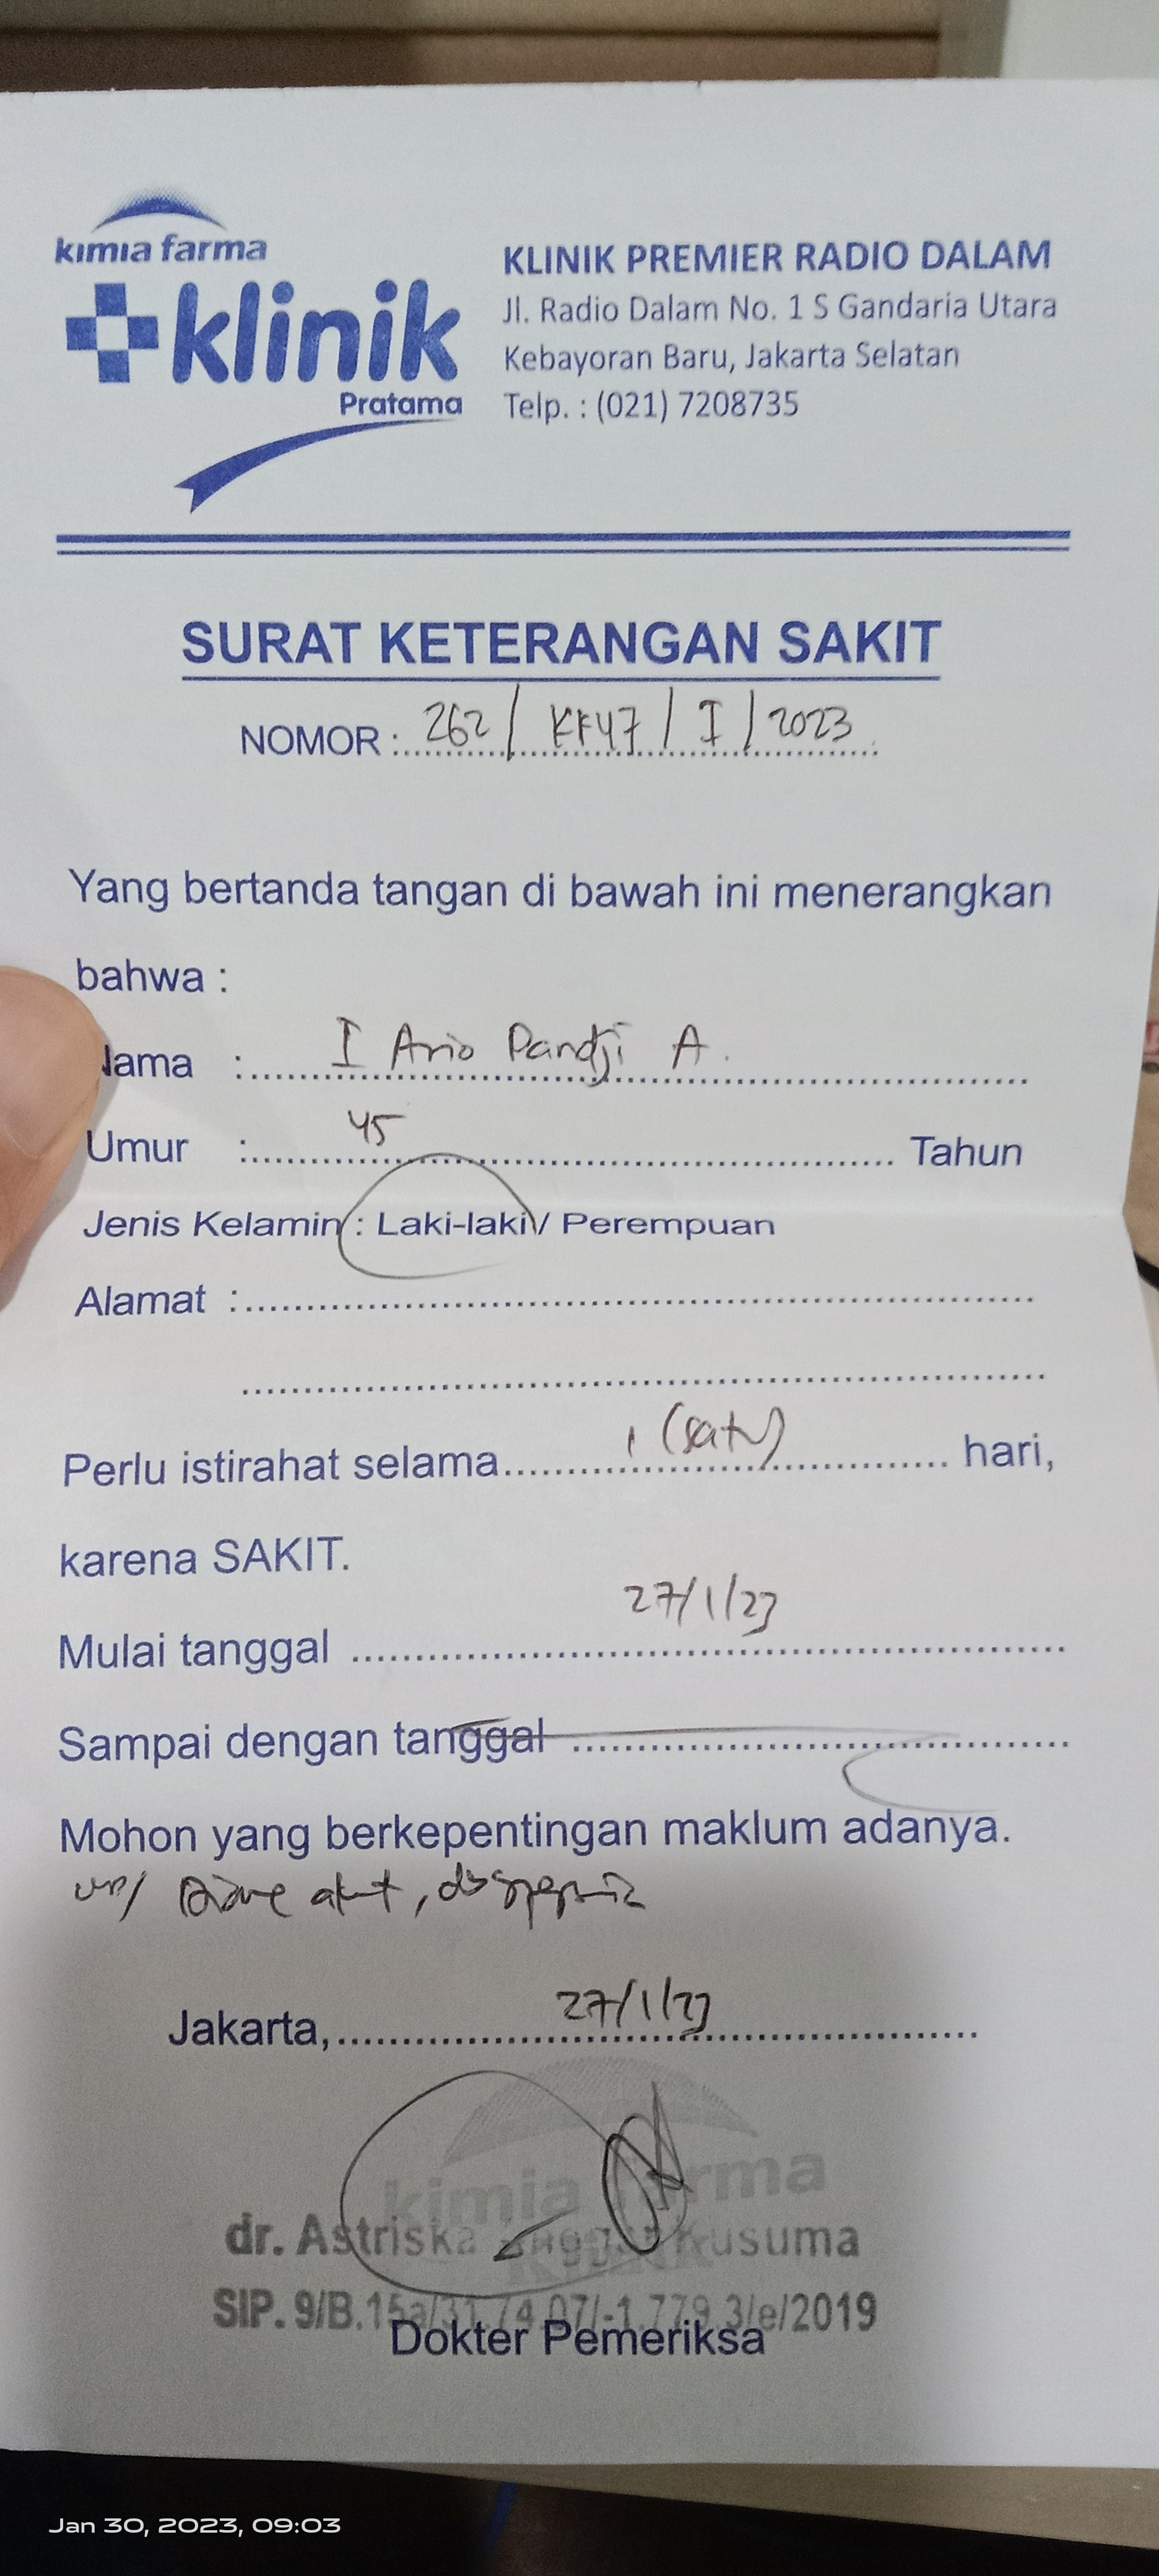 kimia farma
klinik
Pratama
KLINIK PREMIER RADIO DALAM
Jl. Radio Dalam No. 1 S Gandaria Utara
Kebayoran Baru, Jakarta Selatan
Telp. : (021) 7208735
SURAT KETERANGAN SAKIT
NOMOR : 262 / KF47 / I / 2023
Yang bertanda tangan di bawah ini menerangkan
bahwa :
Nama : I Ario Pandji A.
Umur : 45 Tahun
Jenis Kelamin : Laki-laki / Perempuan
Alamat :
Perlu istirahat selama 1 (satu) hari,
karena SAKIT.
Mulai tanggal 27/1/23
Sampai dengan tanggal
Mohon yang berkepentingan maklum adanya.
Diare akut, dispepsia
Jakarta, 27/1/23
kimia farma
dr. Astriska Kusuma
SIP. 9/B.15a/31.74.07/-1.779.3/e/2019
Dokter Pemeriksa
Jan 30, 2023, 09:03